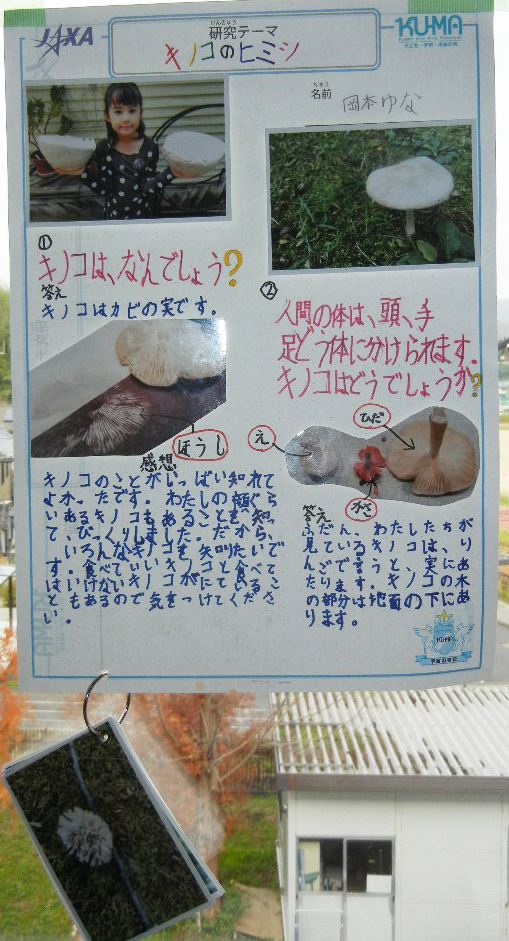 JAXA
KUMA
けんきゅう
研究テーマ
キノコのヒミツ
なまえ
名前 岡本ゆな
①
キノコは、なんでしょう?
答え
キノコはカビの実です。
ほうし
感想
キノコのことがいっぱい知れて
よかったです。わたしの顔ぐら
いあるキノコもあることを知っ
て、びっくりしました。だから、
いろんなキノコも知りたいで
す。食べていいキノコと食べて
はいけないキノコがにているこ
ともあるので気をつけてくださ
い。
②
人間の体は、頭、手
足どう体にかけられます。
キノコはどうでしょうか?
ひだ
え
かさ
答え
ふだん、わたしたちが
見ているキノコは、り
んごで言うと、実にあ
たります。キノコの木
の部分は地面の下にあ
ります。
KUMA